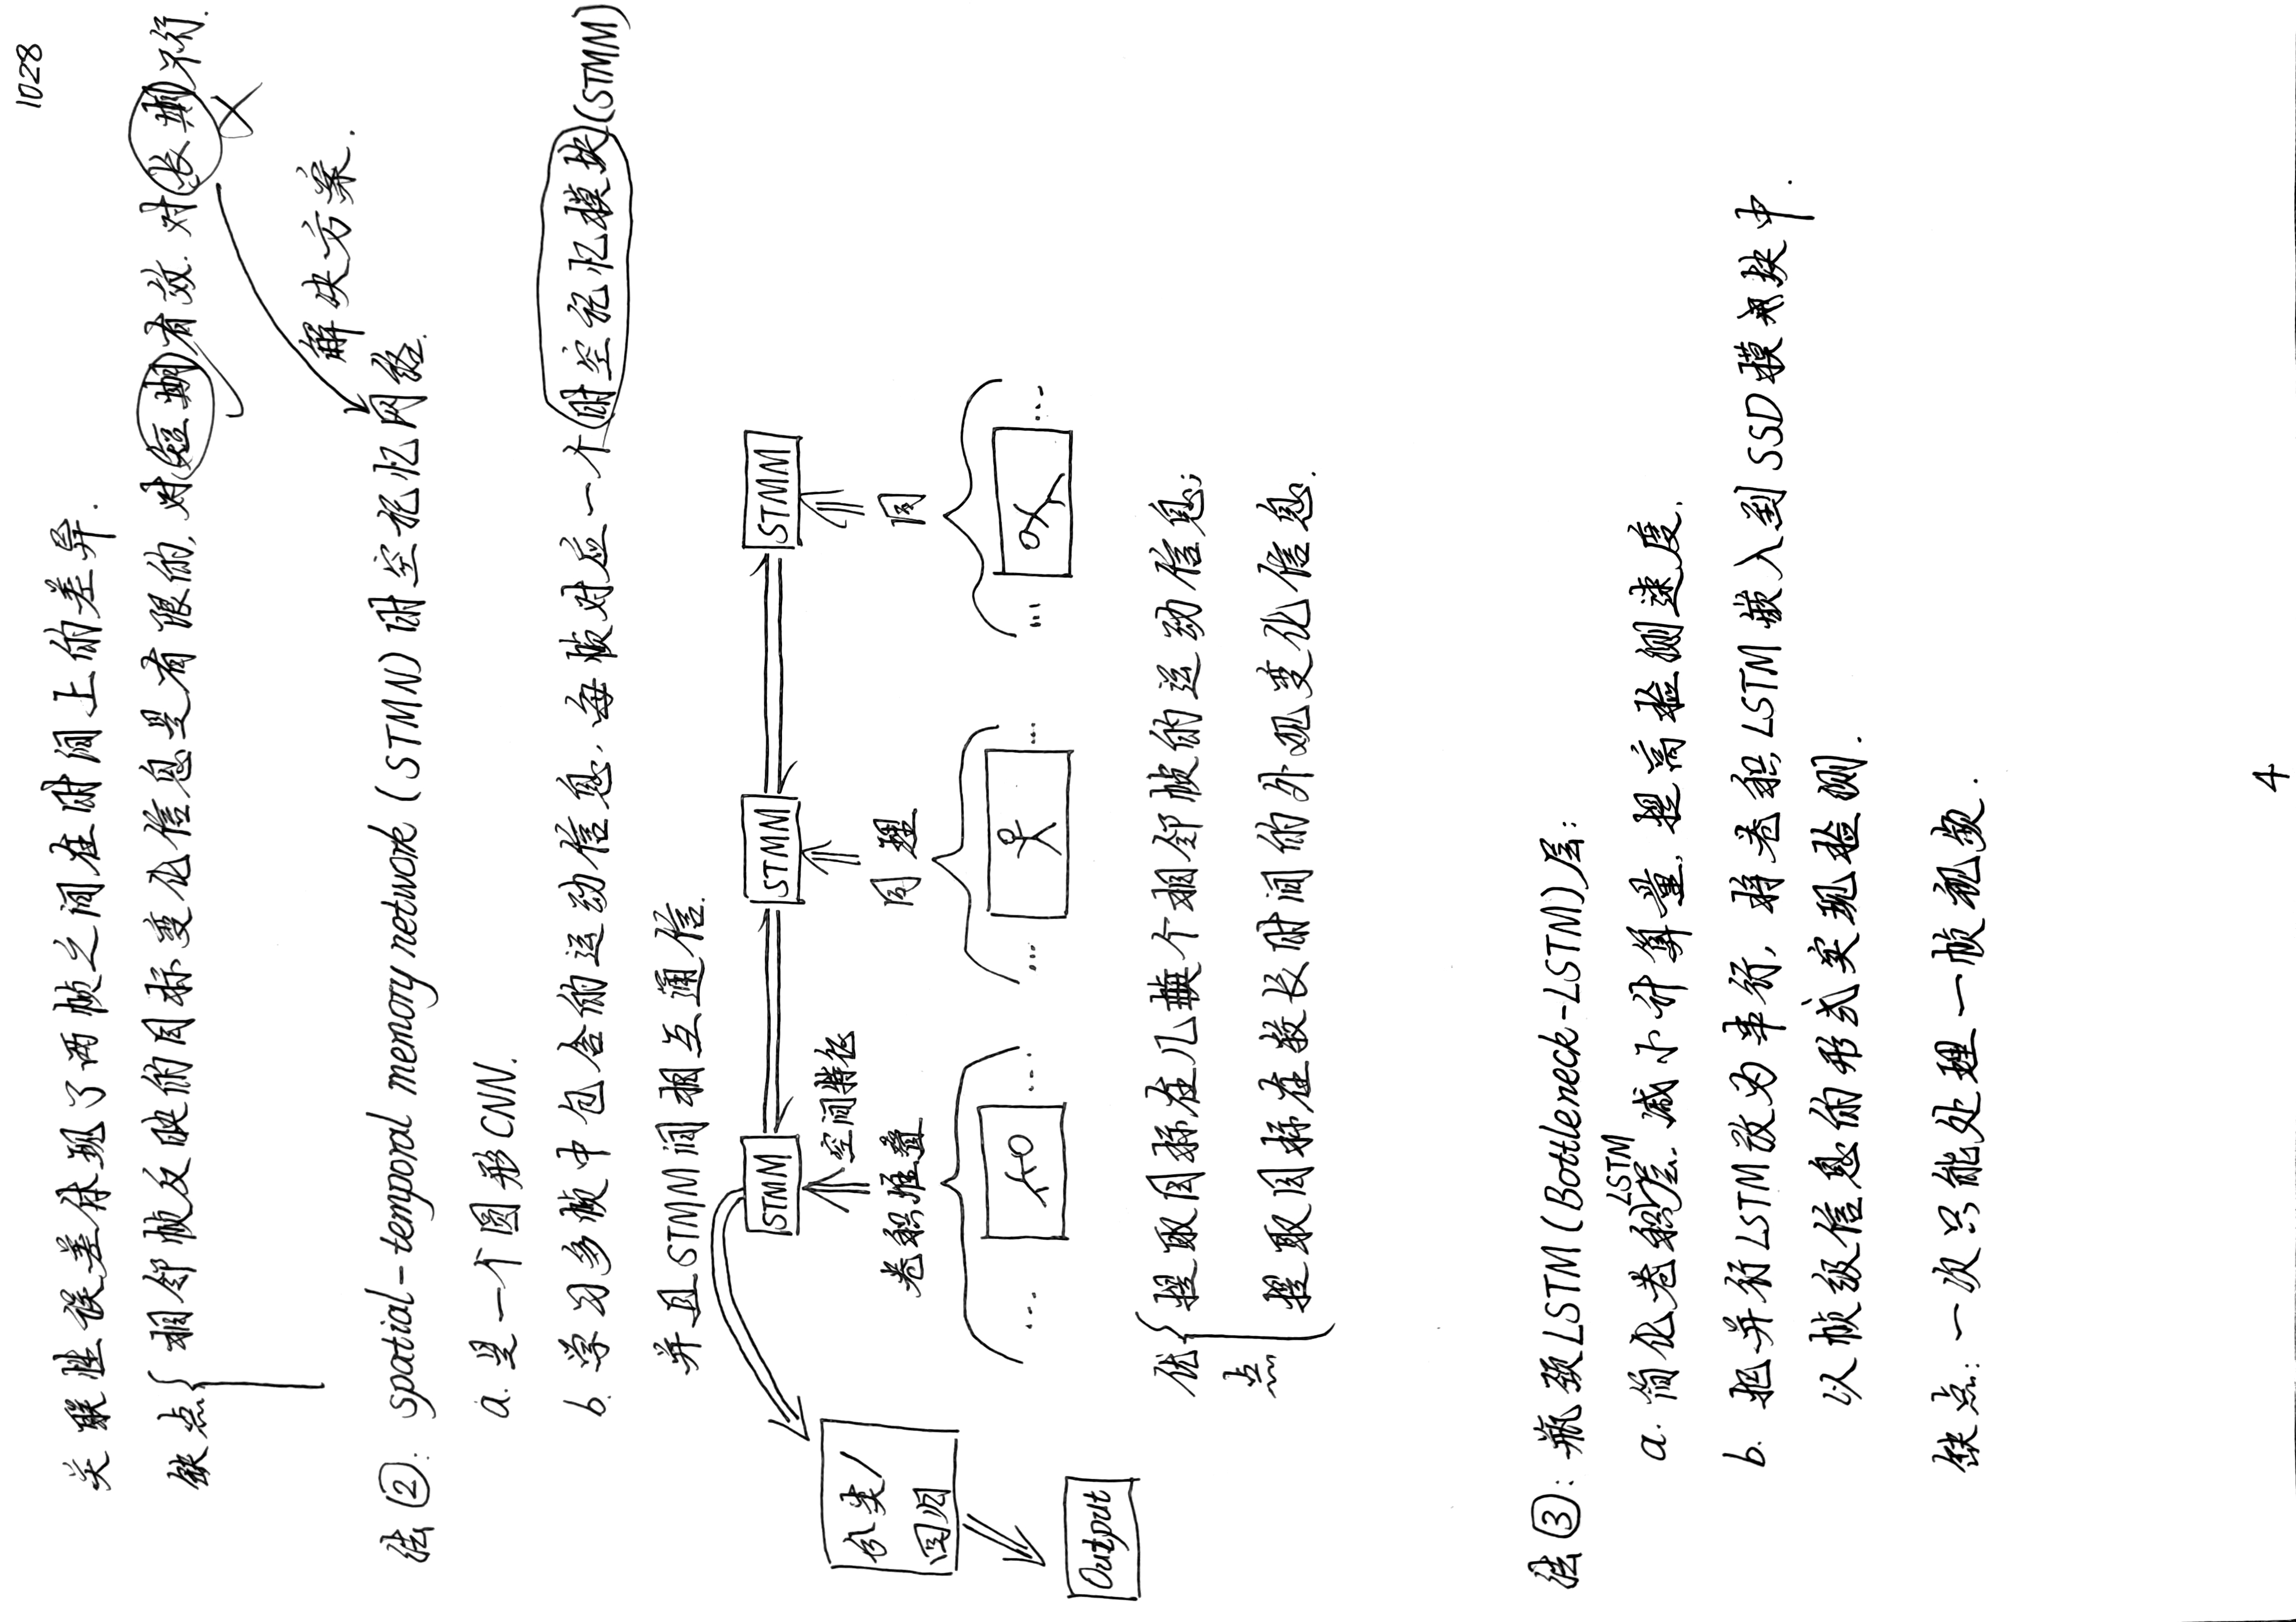 1028
关联性误差体现了两帧之间在时间上的差异.
缺点{ 相邻帧反映的目标变化信息是有限的, 对短期有效. 对长期不行.
解决方案.
法②: spatial-temporal memory network (STMN) 时空记忆网络.
a. 是一个圆形CNN.
b. 学习多帧中包含的运动信息, 每帧对应一个时空记忆模块(STMM)
并且STMM间相互通信.
STMM STMM STMM
空间特征
分类/
回归
卷积堆叠 同理 同
... ... ... ... ... ...
Output
优点{ 提取目标在几个相邻帧的运动信息;
提取目标在较长时间的外观变化信息.
法③: 瓶颈LSTM (Bottleneck-LSTM) 层:
a. 简化卷积LSTM层. 减小计算量, 提高检测速度.
b. 把并行LSTM改为串行, 将卷积LSTM嵌入到SSD模块中.
以帧级信息的形式实现检测.
缺点: 一次只能处理一帧视频.
4